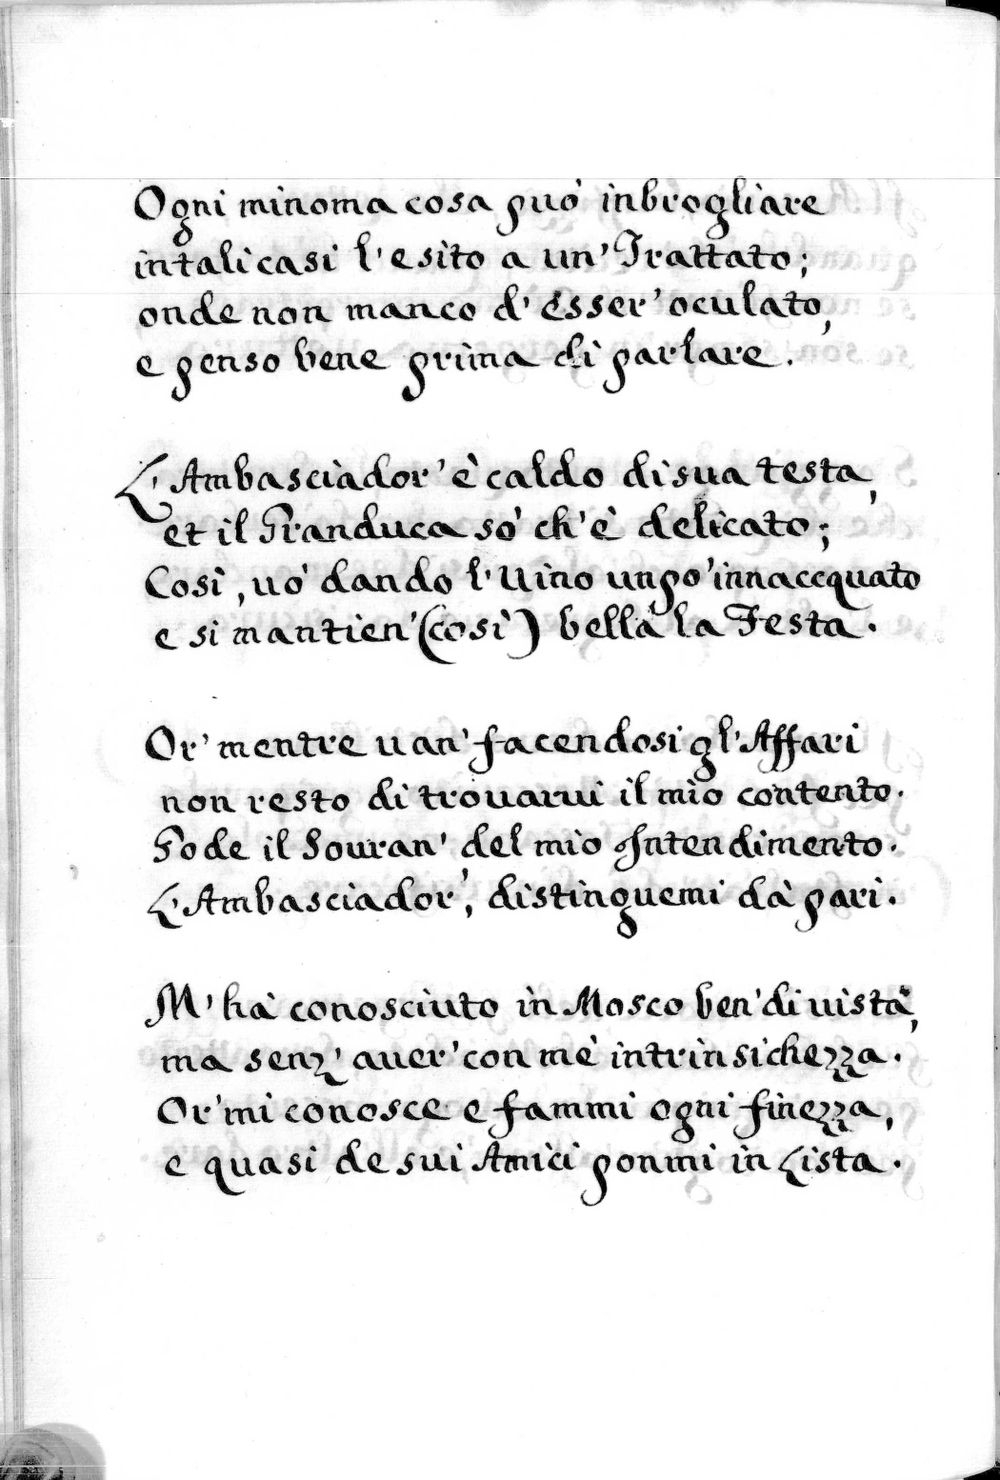 Ogni minoma cosa può inbrogliare
in tali casi l'esito a un' Trattato;
onde non manco d' esser' oculato,
e penso bene prima di parlare.
L'Ambasciador' è caldo di sua testa,
et il Granduca sò ch' è delicato;
Così, uò dando l' Uino un pò' innacequato
e si mantien' (così) bella la Festa.
Or' mentre uan' facendosi gl' Affari
non resto di trouarui il mio contento.
Gode il Souran' del mio Intendimento.
L'Ambasciador', distinguemi dà pari.
M' hà conosciuto in Mosco ben' di uista,
ma senz' auer' con mè intrinsichezza.
Or' mi conosce e fammi ogni finezza,
e quasi de sui Amici ponmi in Lista.